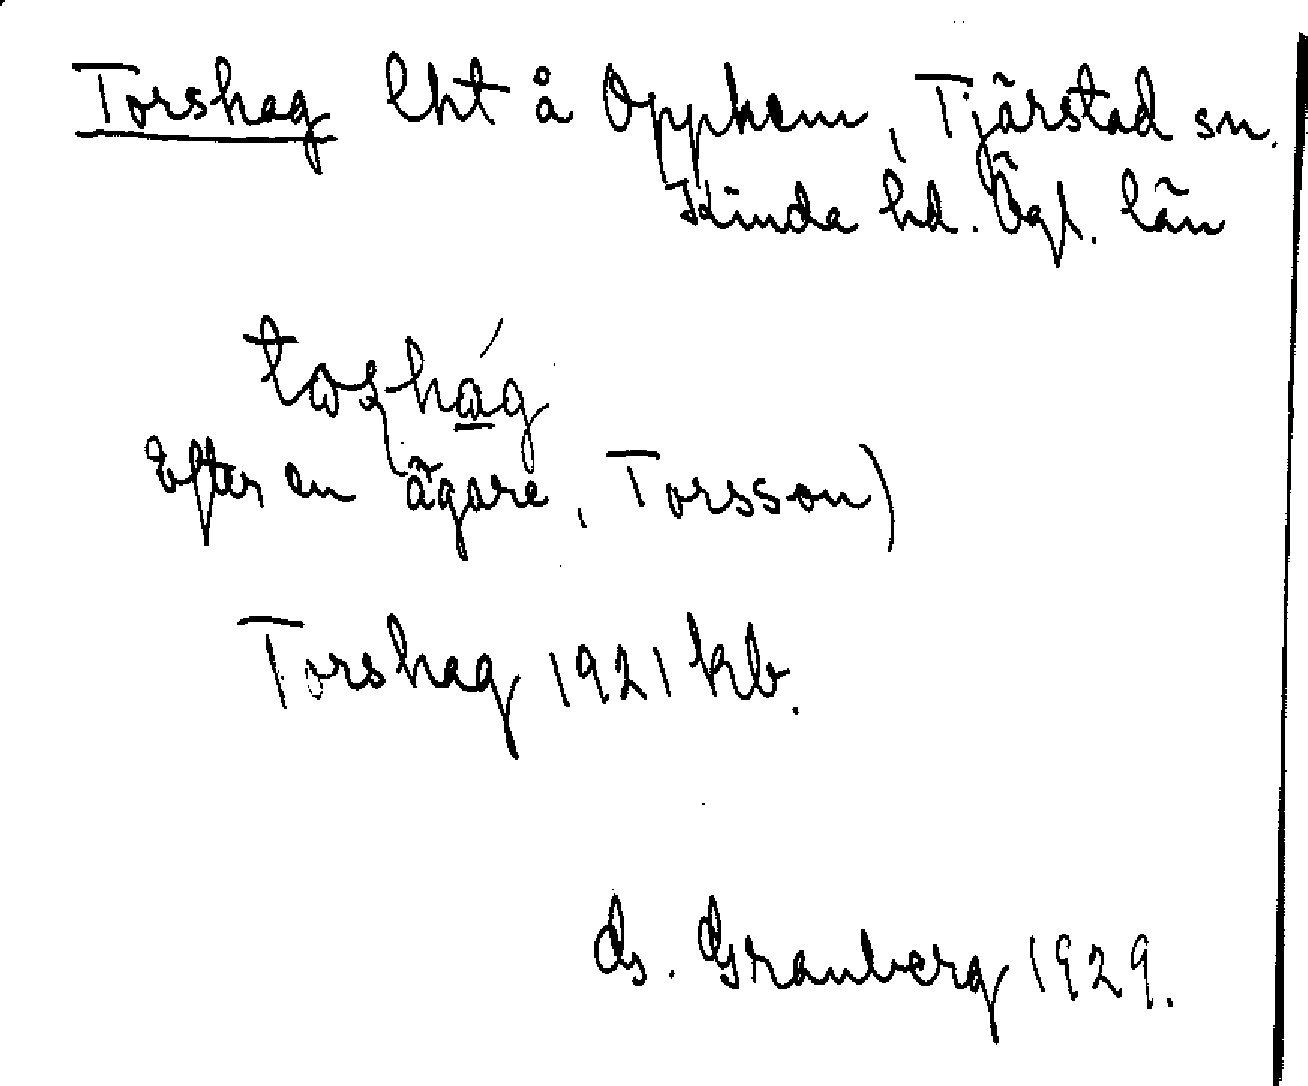 Torshag lht å Opphem, Tjärstad sn.
Kinda hd. Ögl. län
Efter en ägare, Torsson)
Torshag 1921 kb.
G. Granberg 1929.